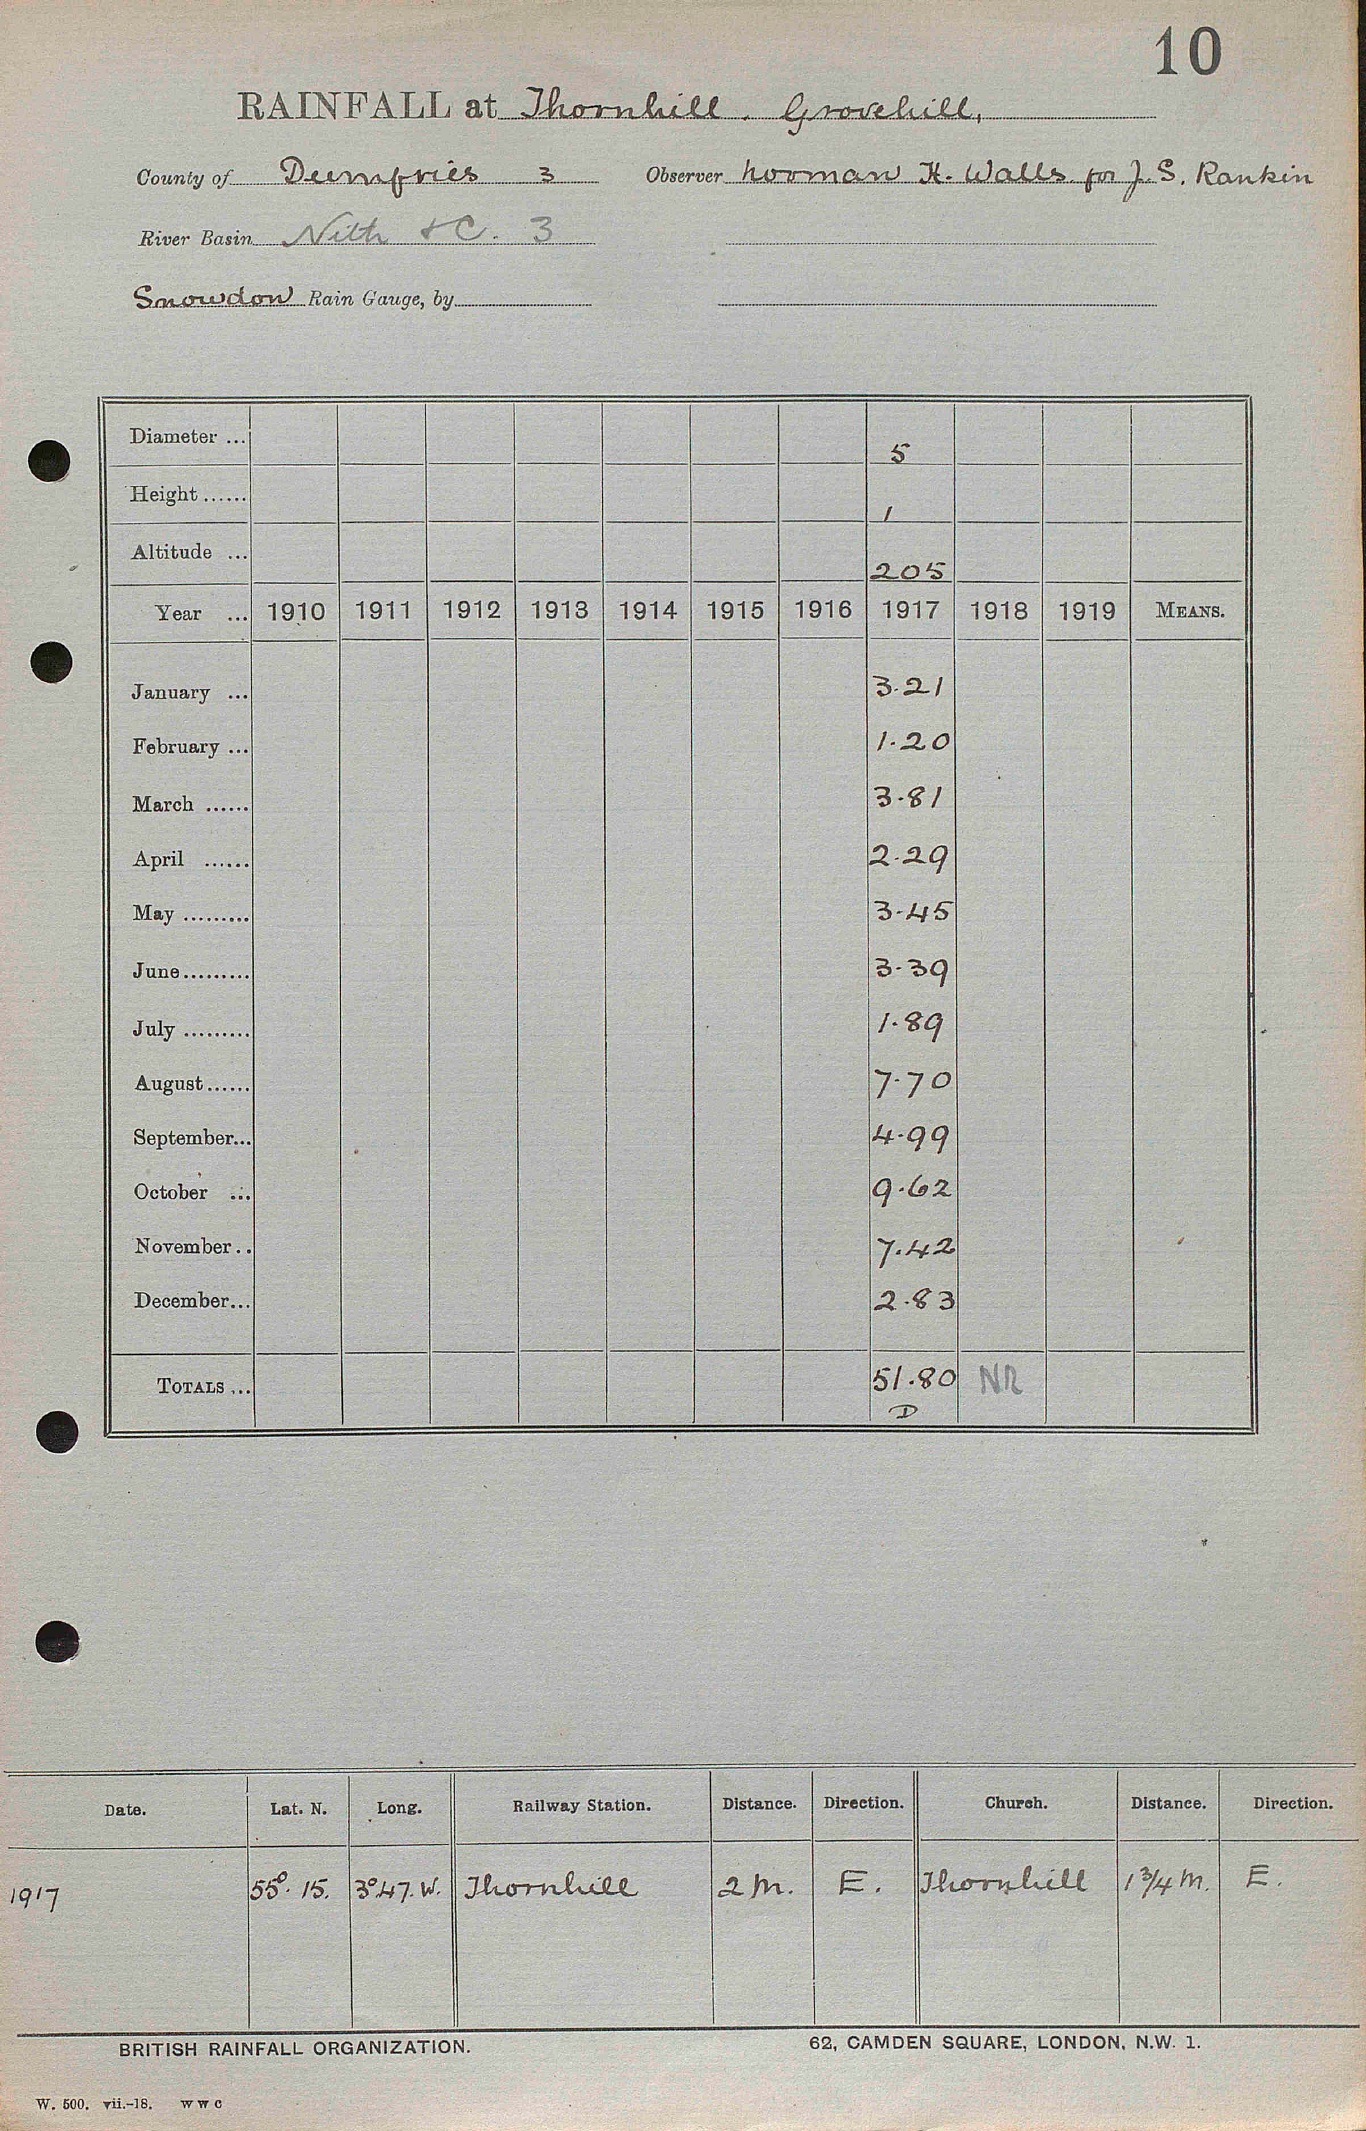 10
RAINFALL at Thornhill. Grovehill,
County of Dumfries 3 Observer Norman H. Walls for J. S. Rankin
River Basin Nith &C. 3
Snowdon Rain Gauge, by
Diameter ... 5
Height ...... 1
Altitude ... 205
Year ... 1910 1911 1912 1913 1914 1915 1916 1917 1918 1919 MEANS.
January ... 3.21
February ... 1.20
March ...... 3.81
April ...... 2.29
May ......... 3.45
June......... 3.39
July ......... 1.89
August...... 7.70
September... 4.99
October ... 9.62
November.. 7.42
December... 2.83
TOTALS ... 51.80 NR
D
Date. Lat. N. Long. Railway Station. Distance. Direction. Church. Distance. Direction.
1917 55°. 15. 3°47.W. Thornhill 2 M. E. Thornhill 1¾ M. E.
BRITISH RAINFALL ORGANIZATION. 62, CAMDEN SQUARE, LONDON, N.W. 1.
W. 500. vii.-18. W W C